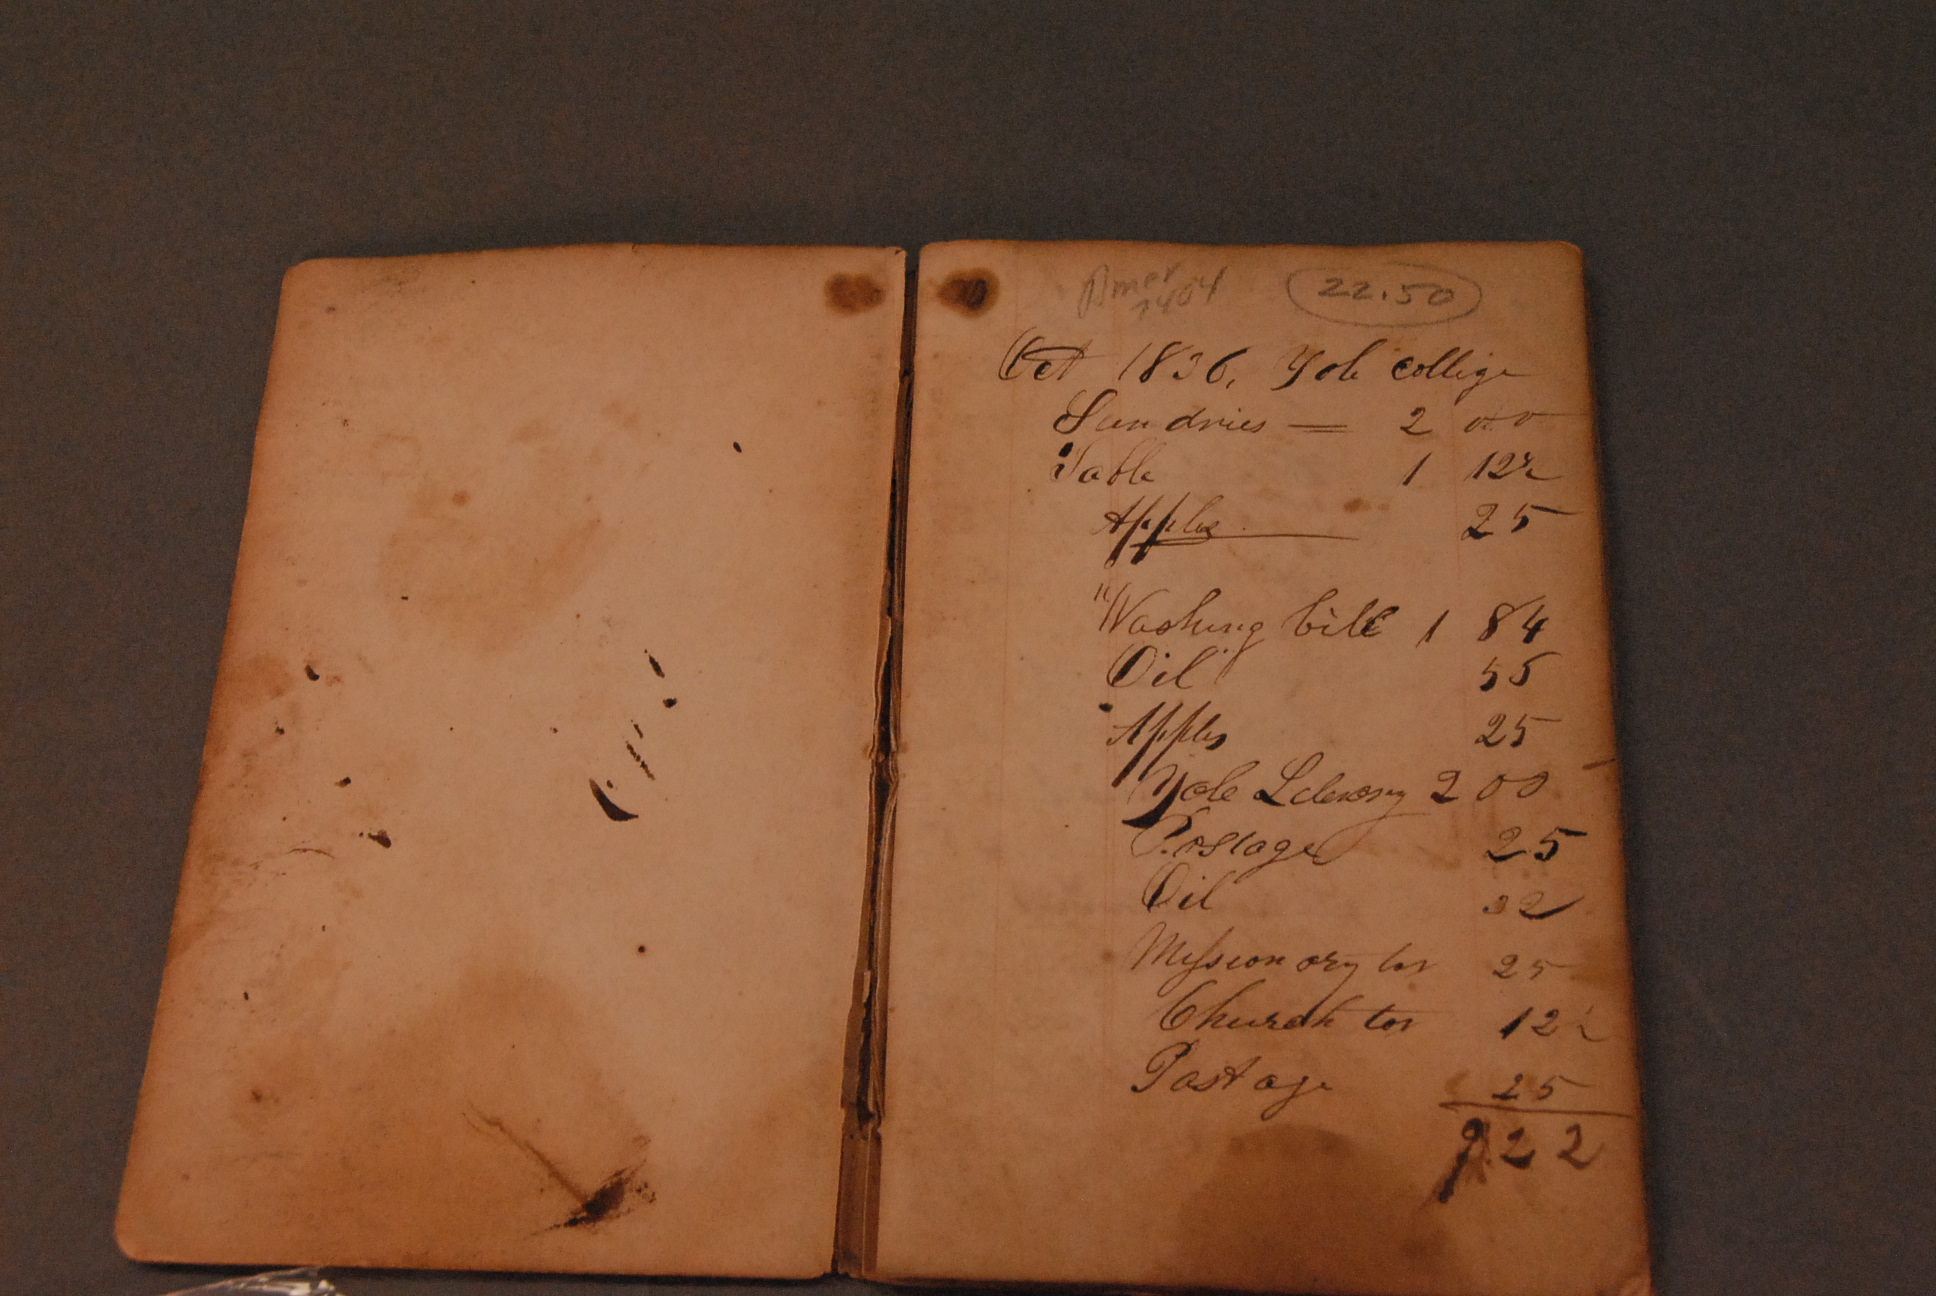 Amer
2404
22.50
Oct 1836, Yale college
Sundries = 2 00
Table 1 12½
Apples 25
"Washing bill 1 84
Oil" 55
Apples 25
Yale Library 2 00
Postage 25
Oil 32
Missionary 25
Church 12½
Postage 25
9.22